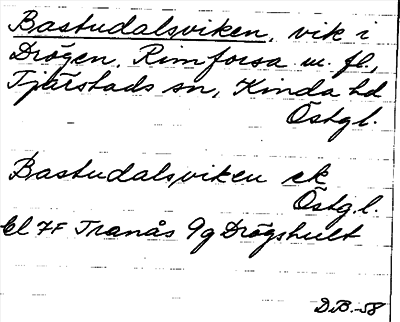 Bastudalsviken, vik i
Drögen, Rimforsa m. fl.,
Tjärstads sn, Kinda hd
Östgl.
Bastudalsviken ek
Östgl.
Bl 7F Tranås 9g Drögshult
D.B.-58